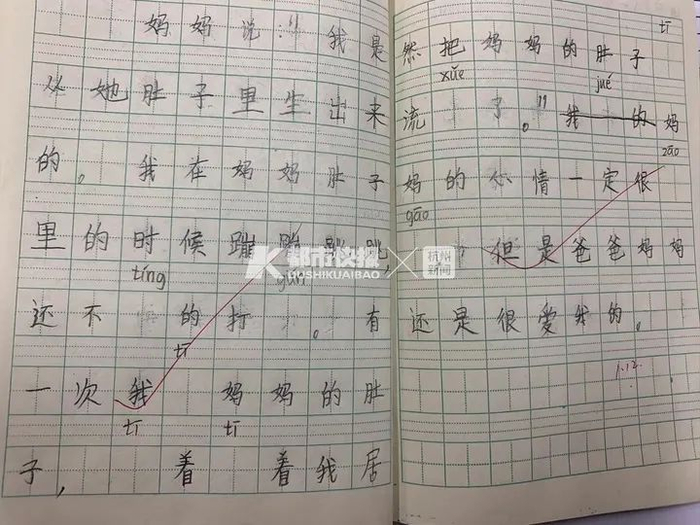 妈妈说:"我是
从她肚子里生出来
的。我在妈妈肚子
里的时候蹦蹦跳跳,
tíng gǔn
还不 的打 。有
tī
一次我 妈妈的肚
tī tī
子, 着 着我居
tī
然把妈妈的肚子
xuě jué
流 了。"我的妈
zāo
妈的心情一定很
gāo
但是爸爸妈妈
还是很爱我的。
1.12.
都市快报
DUSHIKUAIBAO
杭州新闻